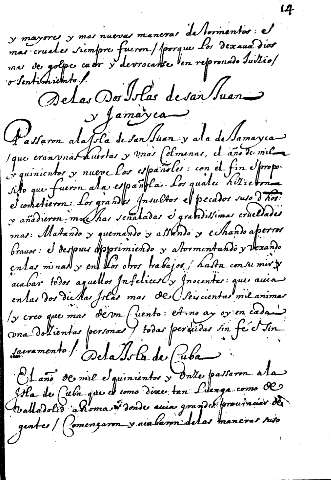 14
y mayores y mas nuevas maneras de tormentos: et
mas crueles siempre fueron / porque los dexava dios
mas de golpe caer y derrocarse en reprovado Juizio /
o sentimiento /
De las Dos Islas de san Juan
y Jamayca
Passaron a la Isla de san Juan y a la de Jamayca
/ que eran unas huertas y unas colmenas, el año de mil
y quinientos y nueve los españoles: con el fin et propo
sito que fueron a la española. Los quales hizieron
et cometieron: Los grandes Insultos et pecados suso dichos
y añadieron muchas señaladas et grandissimas crueldades
mas: Matando y quemando y assando y echando a perros
bravos: et despues opprimiendo y atormentando y vexando
en las minas y en los otros trabajos / hasta consumir y
acabar todos aquellos Infelices et Inocentes: que avia
en las dos dichas Islas mas de seiscientas mil animas
/ y creo que mas de un Cuento: et no ay oy en cada
una dozientas personas / todas perecidas sin fe et sin
sacramento /
De la Isla de Cuba
El año de mil et quinientos y onze passaron a la
Isla de Cuba que es como dixe tan luenga como de
Valladolid a Roma donde avia grandes provincias de
gentes / Començaron y acabaron de las maneras suso